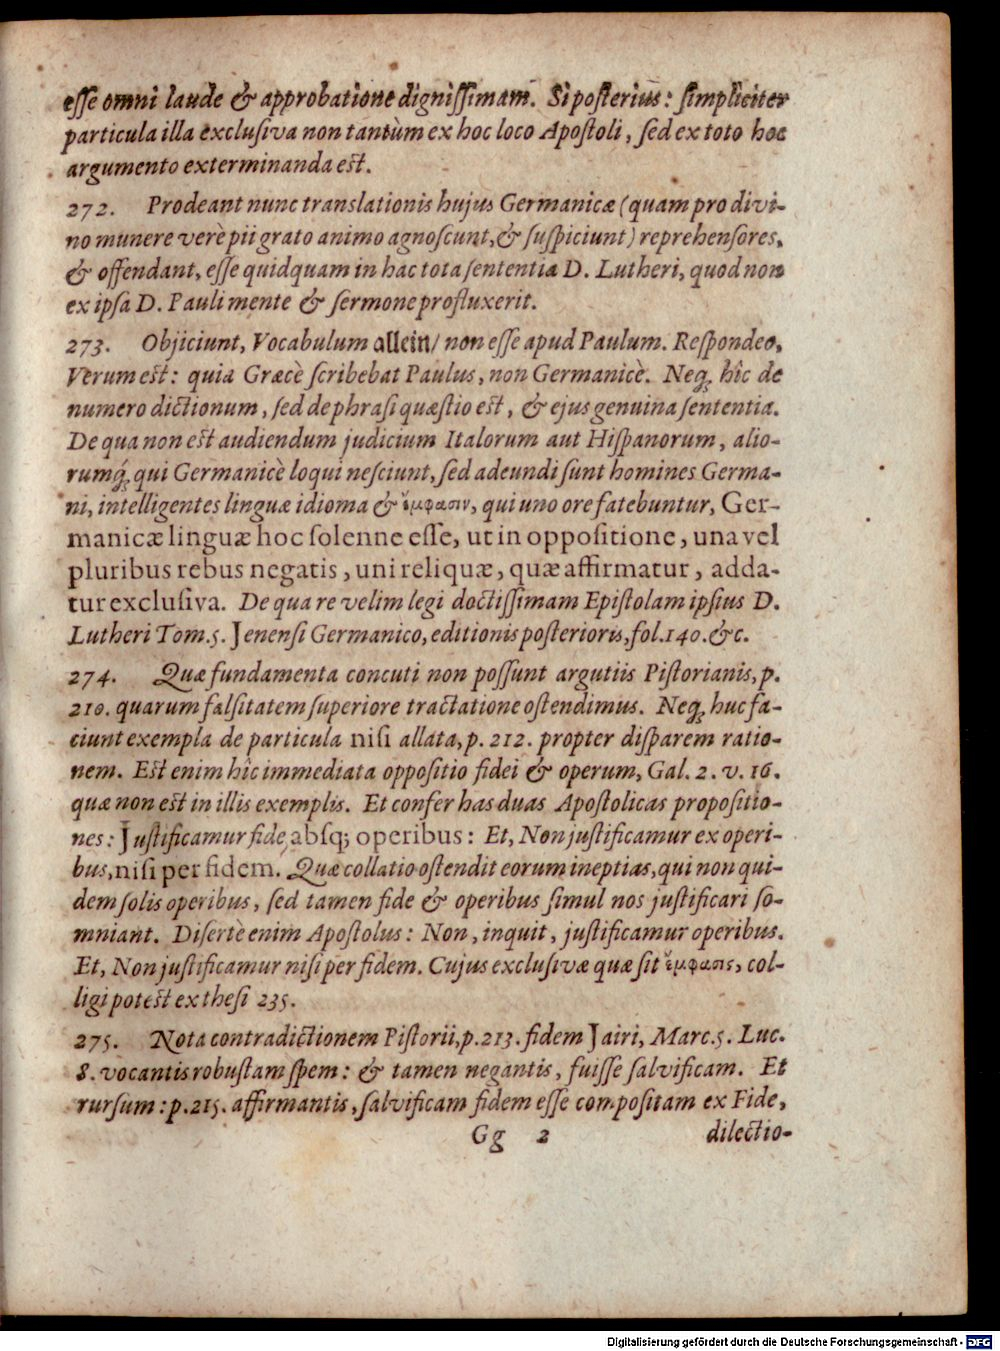 esse omni laude & approbatione dignissimam. Si posterius: simpliciter
particula illa exclusiva non tantùm ex hoc loco Apostoli, sed ex toto hoc
argumento exterminanda est.
272. Prodeant nunc translationis hujus Germanicæ (quam pro divi-
no munere verè pii grato animo agnoscunt, & suspiciunt) reprehensores,
& offendant, esse quidquam in hac tota sententia D. Lutheri, quod non
ex ipsa D. Pauli mente & sermone profluxerit.
273. Objiciunt, Vocabulum allein/ non esse apud Paulum. Respondeo,
Verum est: quia Græcè scribebat Paulus, non Germanicè. Neq; hîc de
numero dictionum, sed de phrasi quæstio est, & ejus genuina sententia.
De qua non est audiendum judicium Italorum aut Hispanorum, alio-
rumq́;, qui Germanicè loqui nesciunt, sed adeundi sunt homines Germa-
ni, intelligentes linguæ idioma & ἔμφασιν, qui uno ore fatebuntur, Ger-
manicæ linguæ hoc solenne esse, ut in oppositione, una vel
pluribus rebus negatis, uni reliquæ, quæ affirmatur, adda-
tur exclusiva. De qua re velim legi doctissimam Epistolam ipsius D.
Lutheri Tom. 5. Jenensi Germanico, editionis posterioris, fol. 140. &c.
274. Quæ fundamenta concuti non possunt argutiis Pistorianis, p.
210. quarum falsitatem superiore tractatione ostendimus. Neq; huc fa-
ciunt exempla de particula nisi allata, p. 212. propter disparem ratio-
nem. Est enim hîc immediata oppositio fidei & operum, Gal. 2. v. 16.
quæ non est in illis exemplis. Et confer has duas Apostolicas propositio-
nes: Justificamur fide absq; operibus: Et, Non justificamur ex operi-
bus, nisi per fidem. Quæ collatio ostendit eorum ineptias, qui non qui-
dem solis operibus, sed tamen fide & operibus simul nos justificari so-
mniant. Disertè enim Apostolus: Non, inquit, justificamur operibus.
Et, Non justificamur nisi per fidem. Cujus exclusivæ quæ sit ἔμφασις, col-
ligi potest ex thesi 235.
275. Nota contradictionem Pistorii, p. 213. fidem Jairi, Marc. 5. Luc.
8. vocantis robustam spem: & tamen negantis, fuisse salvificam. Et
rursum: p. 215. affirmantis, salvificam fidem esse compositam ex Fide,
Gg 2 dilectio-
Digitalisierung gefördert durch die Deutsche Forschungsgemeinschaft - DFG